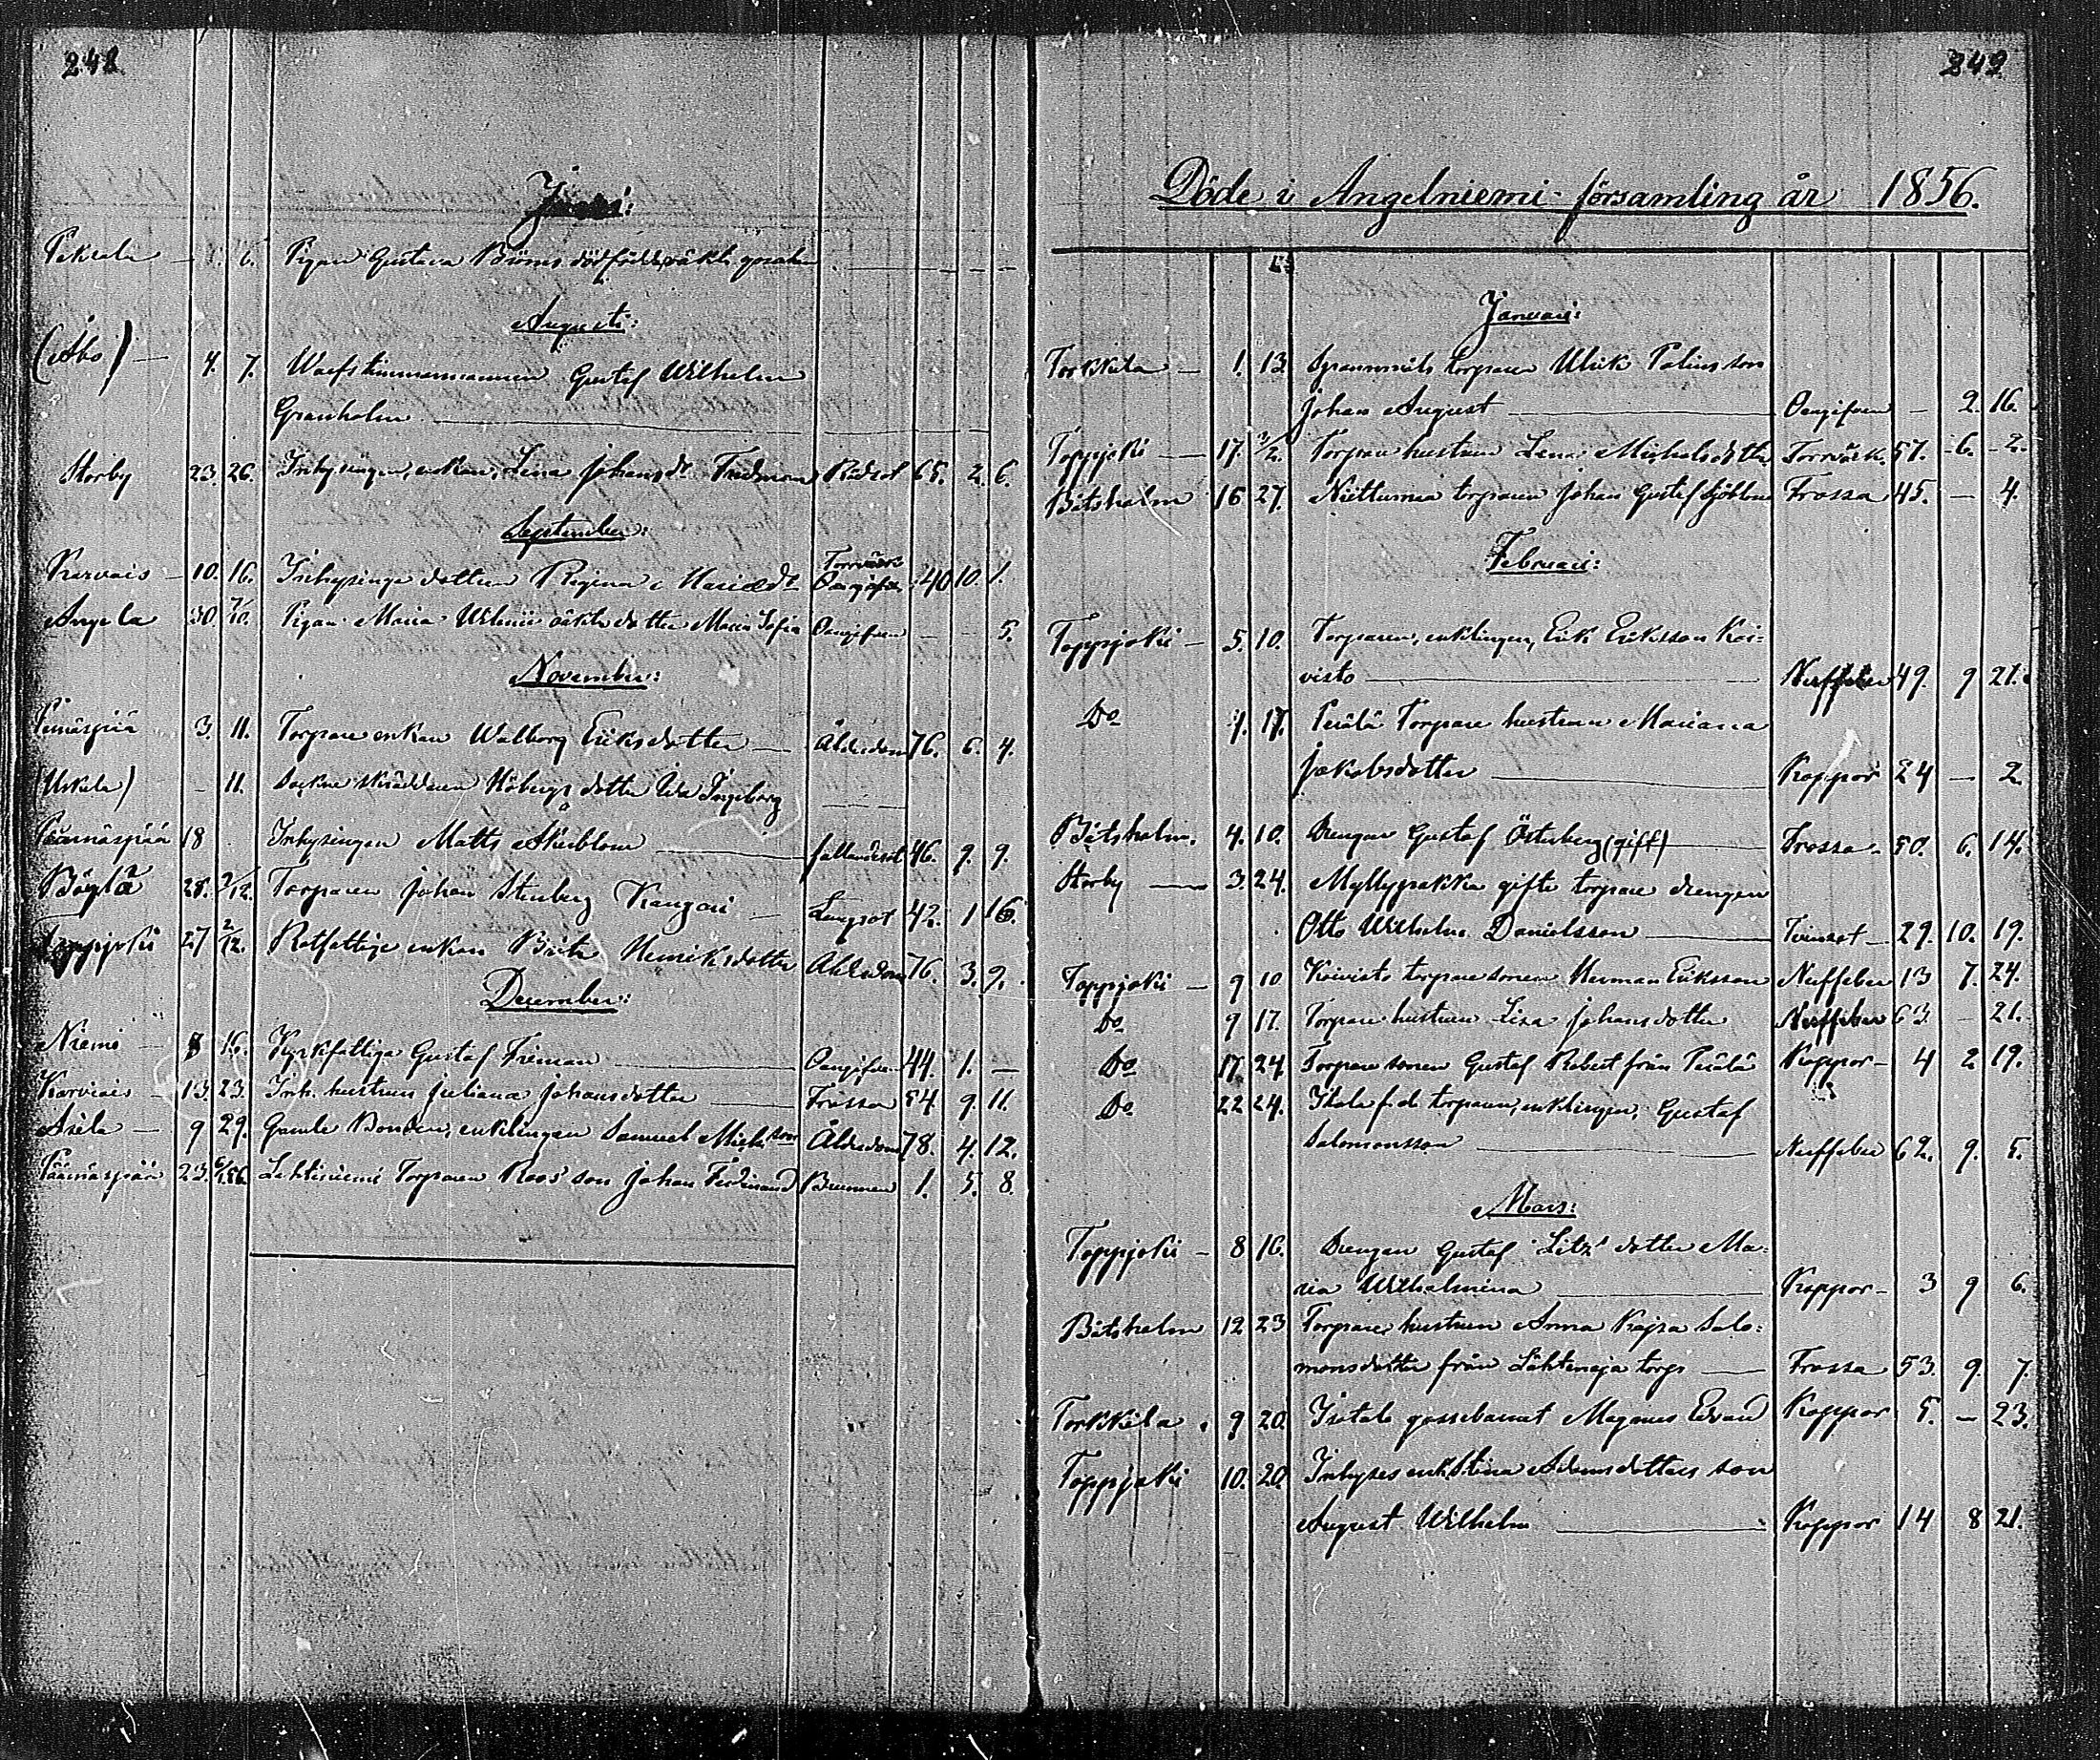 248.
Juni:
Peksala — 6. Pigan Gustava dödfödde oäkta gossebarn
Augusti:
(Åbo) — 4. 7. Warfstimmermannen Gustaf Wilhelm
Granholm
Storby 23. 26. Inhysingen, enkan, Lena Johansdr Rödsot 65. 2. 6.
September:
Karviais — 10. 16. Inhysinge dottren Regina Mariædr Torrvärk Oangifven 40 10. 1.
Angela 30 7/10. Pigan Maria oäkta dotter Maria Sofia Oangifven — — 5.
November:
3. 11. Torpare enkan Walborg Eriksdotter — Ålderdom 76. 6. 4.
(Uskela) — 11. Sockne skräddaren Högbergs dotter Ida Ingeborg
18 Inhysingen Matts fallandesot 46. 9. 9.
Böylä 28. 2/12. Torparen Johan Stenberg Kangari — Lungsot 42. 1 16.
Toppjoki 27 2/12. Rotfattige enkan Brita Henriksdotter Ålderdom 76. 3. 9.
December:
Niemi — 8 16. Kyrkfattiga Gustaf Friman Oangifven 44. 1. —
Karviais — 13. 23. Inh. hustrun Juliana Johansdotter Frossa 54. 9. 11.
Asila — 9 29. Gamle Bonden, enklingen Samuel Michelsson Ålderdom 78. 4. 12.
Päärnäspää 23. 6/1.56. Lehtiniemi Torparen Roos' son Johan Ferdinand Brännan 1. 5. 8.
249
Döde i Angelniemi församling år 1856.
Januari:
Torkkila — 1. 13. torparen Ulrik son
Johan August Oangifven — 2. 16.
Toppjoki — 17. 3/2. Torpare hustrun Lena Michelsdotter Torrvärk. 57. 6. 2.
Båtsholm 16 27. torparen Johan Gustaf Sjöblom Frossa 45. — 4.
Februari:
Toppjoki — 5. 10. Torparen, enklingen, Erik Eriksson Koi=
visto Nerffeber 49. 9 21.
Do 7. 17. Perälä Torpare hustrun Mariana
Jakobsdotter Koppor 24 — 2.
Båtsholm. 4. 10. Drengen Gustaf Österberg (gift) Frossa — 50. 6. 14.
Storby — 3. 24. Myllypakka gifte torpare drengen
Otto Wilhelm Danielsson Tvinsot — 29. 10. 19.
Toppjoki — 9 10 Koivisto torparesonen Herman Eriksson Nerffeber 13 7. 24.
Do 9 17. Torpare hustrun Lisa Johansdotter Nerffeber 63. — 21.
Do 17. 24. Torpare sonen Gustaf Robert från Perälä Koppor — 4 2 19.
Do 22 24. f.d. torparen, enklingen, Gustaf
Salomonsson Nerffeber 62. 9. 5.
Mars:
Toppjoki — 8 16. Drengen Gustaf Litz' dotter Ma=
ria Wilhelmina Koppor — 3 9 6.
Båtsholm 12 23 Torpare hustrun Anna Kajsa Salo=
monsdotter från torp Frossa 53. 9. 7.
Torkkila. 9 20. Isotalo gossebarnet Magnus Edvard Koppor 5. — 23.
Toppjoki 10. 20. Inhyses enk. Stina Adamsdotters son
August Wilhelm Koppor 14 8 21.